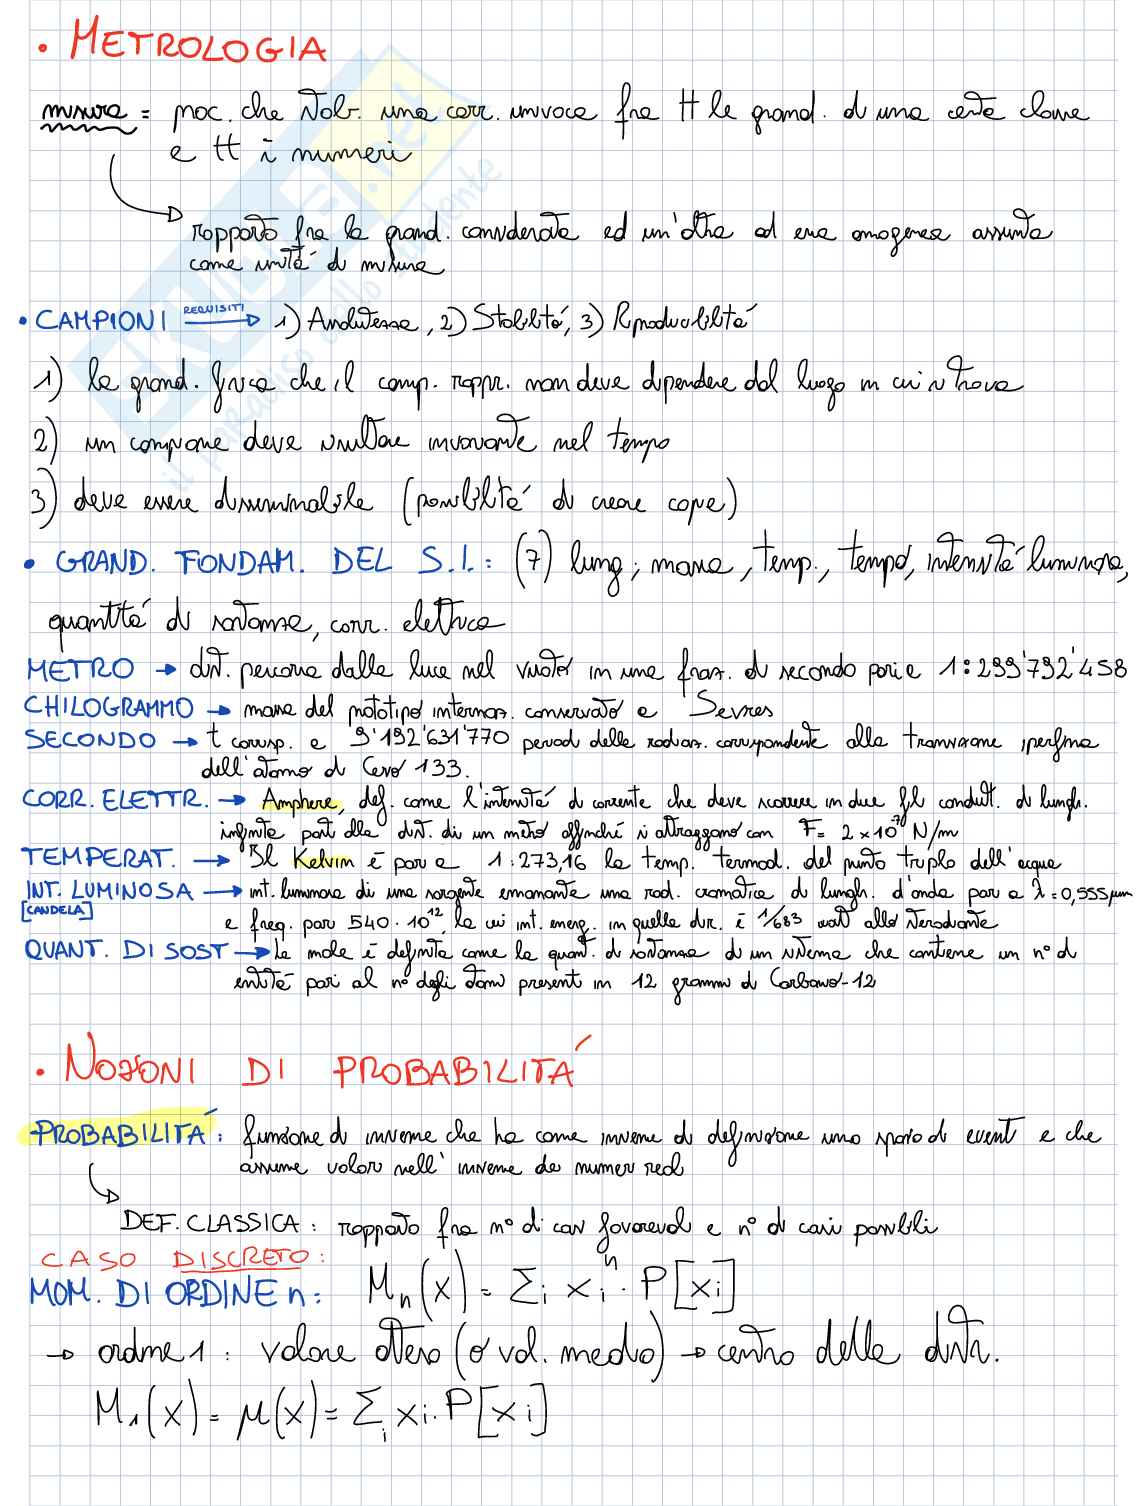 • METROLOGIA
misura = proc. che stab. una corr. univoca fra tt le grand. di una certa classe
e tt i numeri
rapporto fra la grand. considerata ed un'altra ad essa omogenea assunta
come unità di misura
• CAMPIONI REQUISITI → 1) Assolutezza, 2) Stabilità, 3) Riproducibilità
1) la grand. fisica che il camp. rappr. non deve dipendere dal luogo in cui si trova
2) un campione deve risultare invariante nel tempo
3) deve essere disseminabile (possibilità di creare copie)
• GRAND. FONDAM. DEL S.I.: (7) lung., massa, temp., tempo, intensità luminosa,
quantità di sostanza, corr. elettrica
METRO → dist. percorsa dalla luce nel vuoto in una fraz. di secondo pari a 1:299'792'458
CHILOGRAMMO → massa del prototipo internaz. conservato a Sevres
SECONDO → t corrisp. a 9'192'631'770 periodi della radiaz. corrispondente alla transizione iperfina
dell'atomo di Cesio 133.
CORR. ELETTR. → Amphere, def. come l'intensità di corrente che deve scorrere in due fili condutt. di lungh.
infinita posti alla dist. di un metro affinché si attraggano con F= 2×10⁻⁷ N/m
TEMPERAT. → Il Kelvin è pari a 1:273,16 la temp. termod. del punto triplo dell'acqua
INT. LUMINOSA → int. luminosa di una sorgente emanante una rad. cromatica di lungh. d'onda pari a λ=0,555 μm
[CANDELA] e freq. pari 540·10¹², la cui int. energ. in quella dir. è 1/683 watt allo steradiante
QUANT. DI SOST → La mole è definita come la quant. di sostanza di un sistema che contiene un n° di
entità pari al n° degli atomi presenti in 12 grammi di Carbonio-12
• NOZIONI DI PROBABILITÁ
PROBABILITÁ: funzione di insieme che ha come insieme di definizione uno spazio di eventi e che
assume valori nell'insieme dei numeri reali
DEF. CLASSICA: rapporto fra n° di casi favorevoli e n° di casi possibili
CASO DISCRETO:
MOM. DI ORDINE n: Mₙ(x) = Σᵢ xᵢⁿ · P[xᵢ]
→ ordine 1: valore atteso (o val. medio) → centro della distr.
M₁(x) = μ(x) = Σᵢ xᵢ · P[xᵢ]